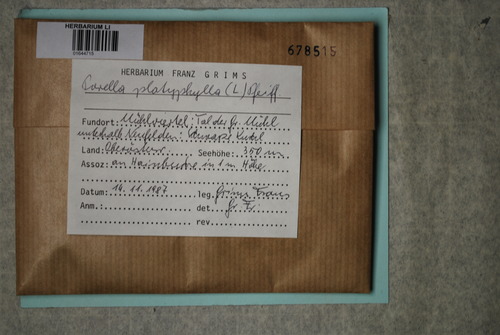 HERBARIUM LI
678515
HERBARIUM FRANZ GRIMS
Porella platyphylla (L.) Pfeiff
Fundort: Mühlviertel: Tal der Gr. Mühl
unterhalb Neufelden:
Land: Oberösterr. Seehöhe: 350 m
Assoz: an Hainbuche in 1 m Höhe
Datum: 14.11.1987 leg. Grims Franz
Anm.: det. Gr. Fr.
rev.